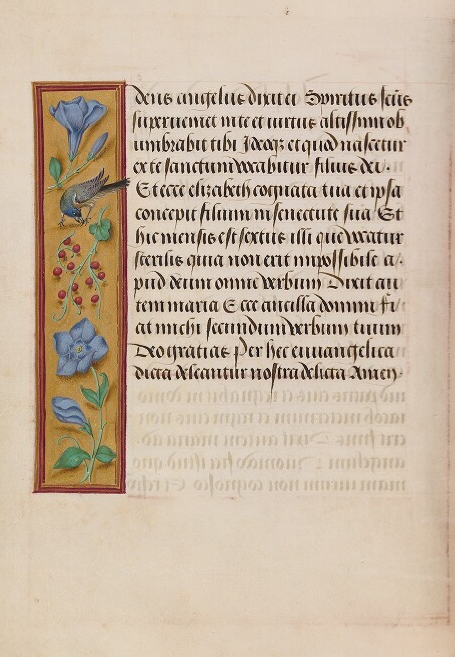 dens angelus dixit ei Spiritus sc̄us
superueniet in te et uirtus altissimi ob
umbrabit tibi Ideoq; et quod nascetur
ex te sanctum vocabitur filius dei.
Et ecce elizabeth cognata tua et ipsa
concepit filium in senectute sua Et
hic mensis est sextus illi que vocatur
sterilis quia non erit impossibile a/
pud deum omne verbum Dixit au
tem maria Ecce ancilla domini fi/
at michi secundum verbum tuum
Deo gratias Per hec euuangelica
dicta deleantur nostra delicta Amen.